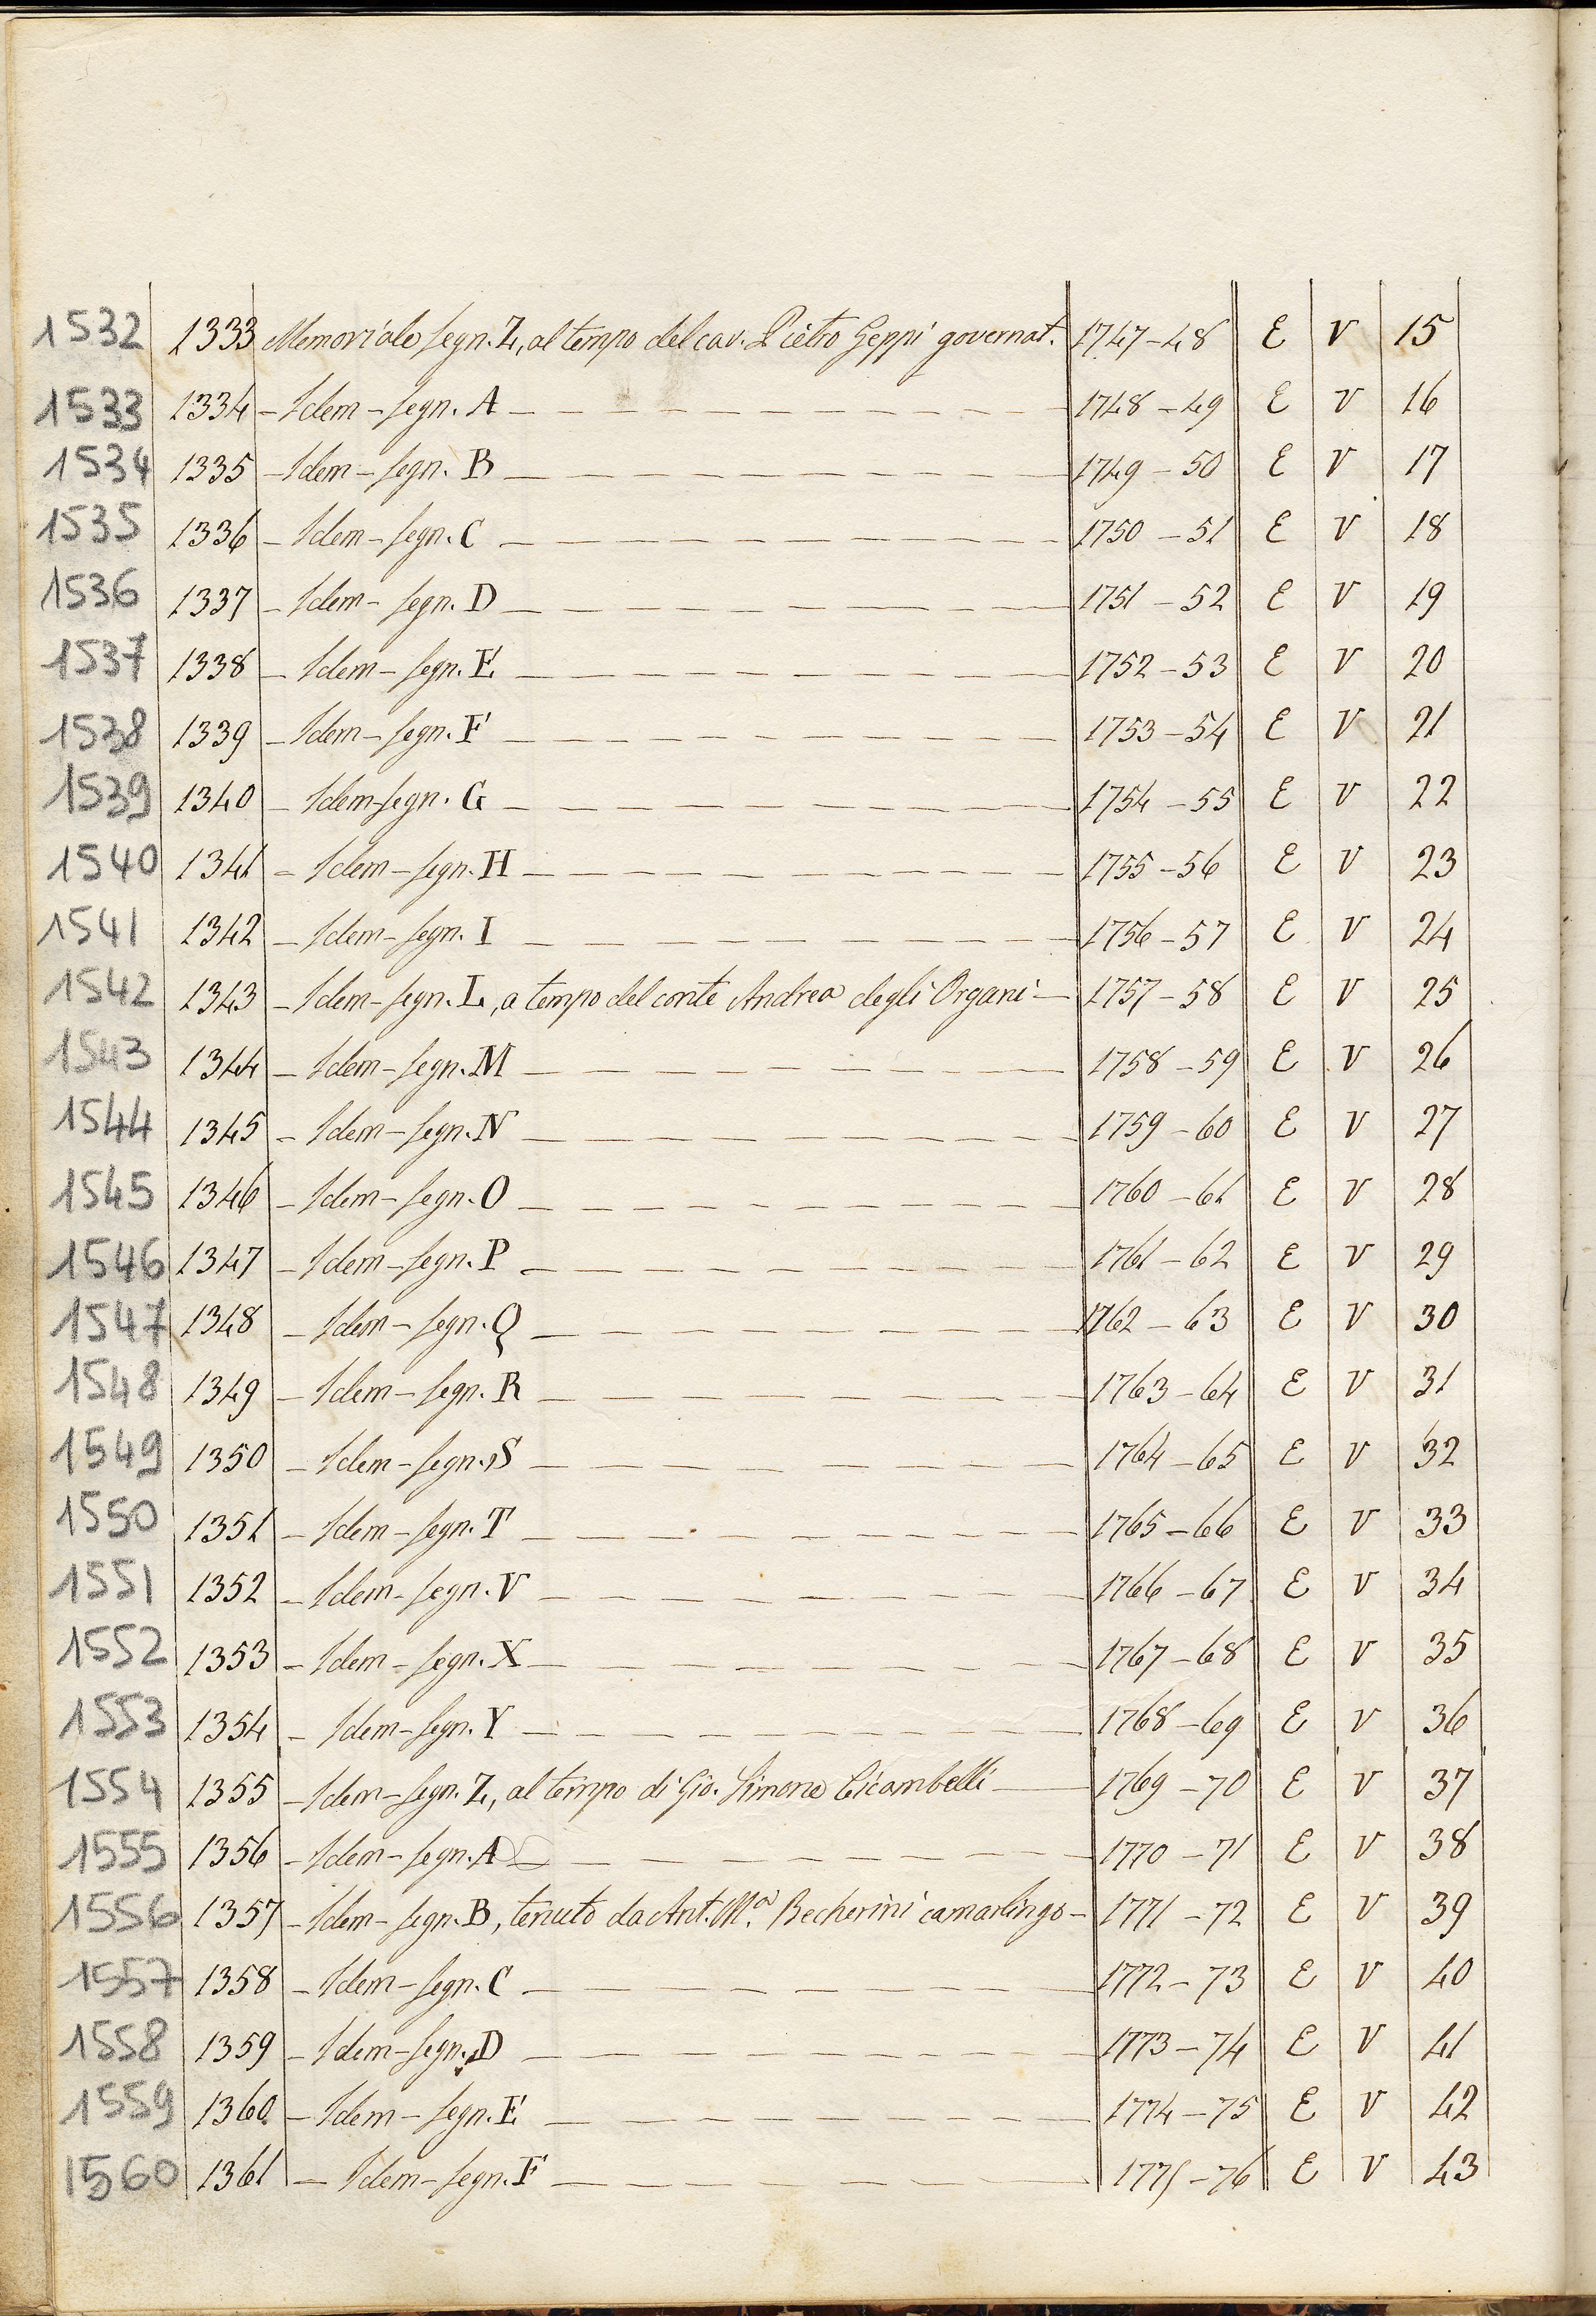 1532 1333 Memoriale segn. Z, al tempo del cav. Pietro Geppi governat. 1747-48 E V 15
1533 1334 - Idem - segn. A 1748-49 E V 16
1534 1335 - Idem - segn. B 1749-50 E V 17
1535 1336 - Idem - segn. C 1750-51 E V 18
1536 1337 - Idem - segn. D 1751-52 E V 19
1537 1338 - Idem - segn. E 1752-53 E V 20
1538 1339 - Idem - segn. F 1753-54 E V 21
1539 1340 - Idem - segn. G 1754-55 E V 22
1540 1341 - Idem - segn. H 1755-56 E V 23
1541 1342 - Idem - segn. I 1756-57 E V 24
1542 1343 - Idem - segn. L, a tempo del conte Andrea degli Organi - 1757-58 E V 25
1543 1344 - Idem - segn. M 1758-59 E V 26
1544 1345 - Idem - segn. N 1759-60 E V 27
1545 1346 - Idem - segn. O 1760-61 E V 28
1546 1347 - Idem - segn. P 1761-62 E V 29
1547 1348 - Idem - segn. Q 1762-63 E V 30
1548 1349 - Idem - segn. R 1763-64 E V 31
1549 1350 - Idem - segn. S 1764-65 E V 32
1550 1351 - Idem - segn. T 1765-66 E V 33
1551 1352 - Idem - segn. V 1766-67 E V 34
1552 1353 - Idem - segn. X 1767-68 E V 35
1553 1354 - Idem - segn. Y 1768-69 E V 36
1554 1355 - Idem - segn. Z, al tempo di Gio. Simone 1769-70 E V 37
1555 1356 - Idem - segn. A 1770-71 E V 38
1556 1357 - Idem - segn. B, tenuto da Ant. M.ª Becherini camarlingo - 1771-72 E V 39
1557 1358 - Idem - segn. C 1772-73 E V 40
1558 1359 - Idem - segn. D 1773-74 E V 41
1559 1360 - Idem - segn. E 1774-75 E V 42
1560 1361 - Idem - segn. F 1775-76 E V 43